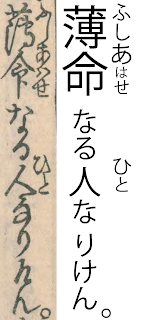 ふしあはせ ひと
薄命なる人なりけん。
ふしあはせ ひと
薄命なる人なりけん。